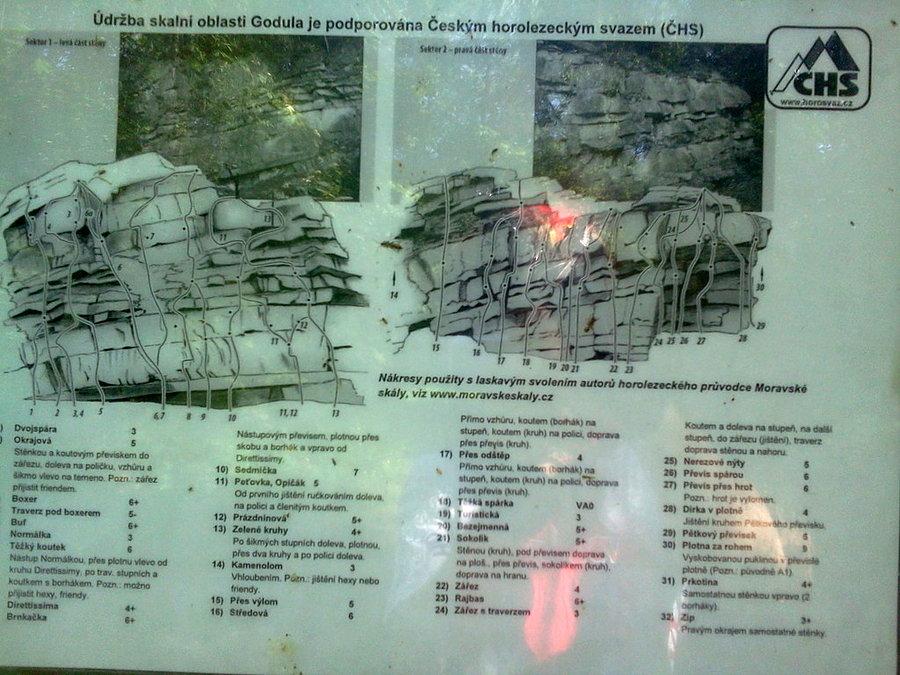 Údržba skalní oblasti Godula je podporována Českým horolezeckým svazem (ČHS)
Sektor 1 – levá část stěny
Sektor 2 – pravá část stěny
CHS
www.horosvaz.cz
14
15
16
17
18
19
20
21
22
23
24
25
26
27
28
29
30
1
2
3,4
5
6,7
8
9
10
11,12
13
Nákresy použity s laskavým svolením autorů horolezeckého průvodce Moravské
skály, viz www.moravskeskaly.cz
) Dvojspára 3
) Okrajová 5
Stěnkou a koutovým převiskem do
zářezu, doleva na poličku, vzhůru a
šikmo vlevo na temeno. Pozn.: zářez
přijistit friendem.
Boxer 6+
Traverz pod boxerem 5-
Buf 6+
Normálka 3
Těžký koutek 6
Nástup Normálkou, přes plotnu vlevo od
kruhu Direttissimy, po trav. stupních a
koutkem s borhákem. Pozn.: možno
přijistit hexy, friendy.
Direttissima 4+
Brnkačka 6+
Nástupovým převisem, plotnou přes
skobu a borhák a vpravo od
Direttissimy.
10) Sedmička 7
11) Peťovka, Opičák 5
Od prvního jištění ručkováním doleva,
na polici a členitým koutkem.
12) Prázdninová 5+
13) Zelené kruhy 4+
Po šikmých stupních doleva, plotnou,
přes dva kruhy a po polici doleva.
14) Kamenolom 3
Vhloubením. Pozn.: jištění hexy nebo
friendy.
15) Přes výlom 5
16) Středová 6
Přímo vzhůru, koutem (borhák) na
stupeň, koutem (kruh) na polici, doprava
přes převis (kruh).
17) Přes odštěp 4
Přímo vzhůru, koutem (borhák) na
stupeň, koutem (kruh) na polici, doprava
přes převis (kruh).
18) Těžká spárka VA0
19) Turistická 3
20) Bezejmenná 5+
21) Sokolík 5+
Stěnou (kruh), pod převisem doprava
na ploš., přes převis, sokolíkem (kruh),
doprava na hranu.
22) Zářez 4
23) Rajbas 6+
24) Zářez s traverzem 3
Koutem a doleva na stupeň, na další
stupeň, do zářezu (jištění), traverz
doprava stěnou a nahoru.
25) Nerezové nýty 5
26) Převis spárou 6
27) Převis přes hrot 6
Pozn.: hrot je vylomen.
28) Dírka v plotně 4
Jištění kruhem Pětkového převisku.
29) Pětkový převisek 5
30) Plotna za rohem 9
Vyskobovanou puklinou v převislé
plotně (Pozn.: původně A1).
31) Prkotina 4+
Samostatnou stěnkou vpravo (2
borháky).
32) Zip 3+
Pravým okrajem samostatné stěnky.